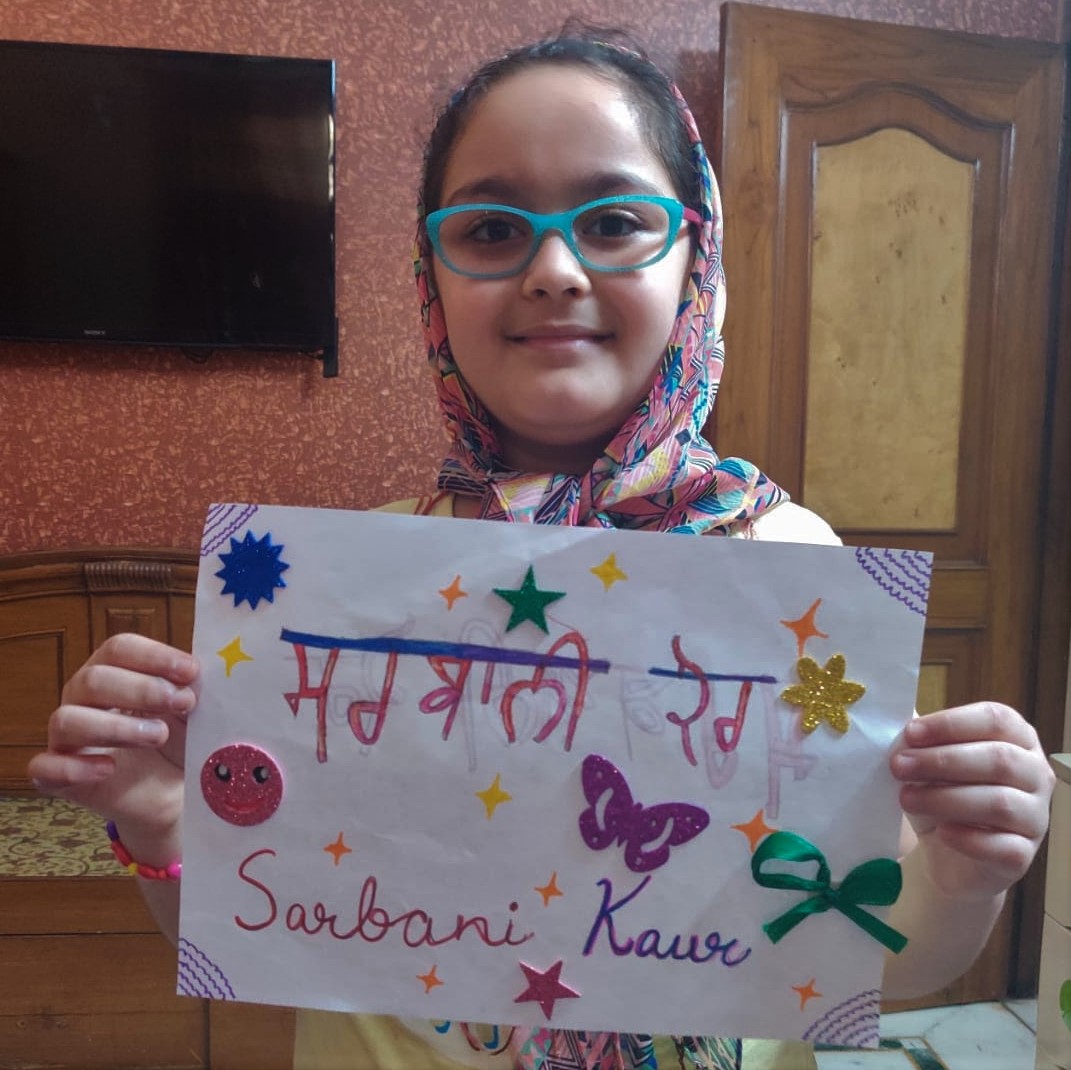 SONY
ਸਰਬਾਨੀ ਕੌਰ
Sarbani Kaur